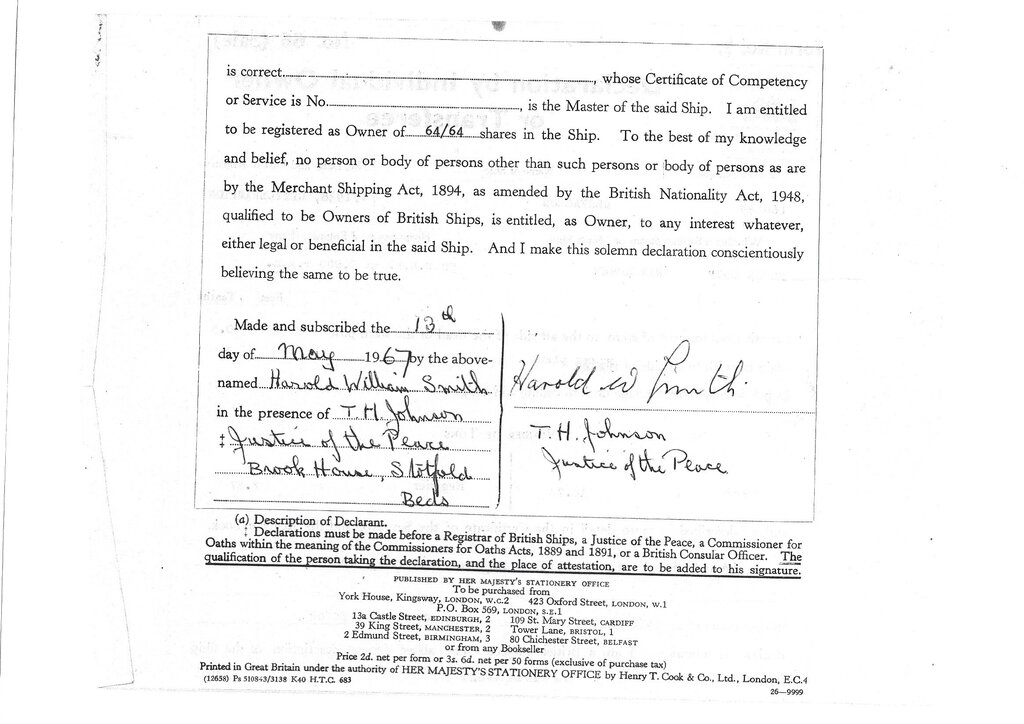 is correct..............................................................................., whose Certificate of Competency
or Service is No..................................................., is the Master of the said Ship. I am entitled
to be registered as Owner of....64/64....shares in the Ship. To the best of my knowledge
and belief, no person or body of persons other than such persons or body of persons as are
by the Merchant Shipping Act, 1894, as amended by the British Nationality Act, 1948,
qualified to be Owners of British Ships, is entitled, as Owner, to any interest whatever,
either legal or beneficial in the said Ship. And I make this solemn declaration conscientiously
believing the same to be true.
Made and subscribed the 13th
day of May 1967 by the above-
named Harold William Smith
in the presence of T. H. Johnson
‡ Justice of the Peace
Brook House, Stotfold
Beds
Harold W Smith.
T. H. Johnson
Justice of the Peace
(a) Description of Declarant.
‡ Declarations must be made before a Registrar of British Ships, a Justice of the Peace, a Commissioner for
Oaths within the meaning of the Commissioners for Oaths Acts, 1889 and 1891, or a British Consular Officer. The
qualification of the person taking the declaration, and the place of attestation, are to be added to his signature.
PUBLISHED BY HER MAJESTY'S STATIONERY OFFICE
To be purchased from
York House, Kingsway, LONDON, W.C.2 423 Oxford Street, LONDON, W.1
P.O. Box 569, LONDON, S.E.1
13a Castle Street, EDINBURGH, 2 109 St. Mary Street, CARDIFF
39 King Street, MANCHESTER, 2 Tower Lane, BRISTOL, 1
2 Edmund Street, BIRMINGHAM, 3 80 Chichester Street, BELFAST
or from any Bookseller
Price 2d. net per form or 3s. 6d. net per 50 forms (exclusive of purchase tax)
Printed in Great Britain under the authority of HER MAJESTY'S STATIONERY OFFICE by Henry T. Cook & Co., Ltd., London, E.C.4
(12658) Ps 510843/3138 K40 H.T.C. 683
26—9999